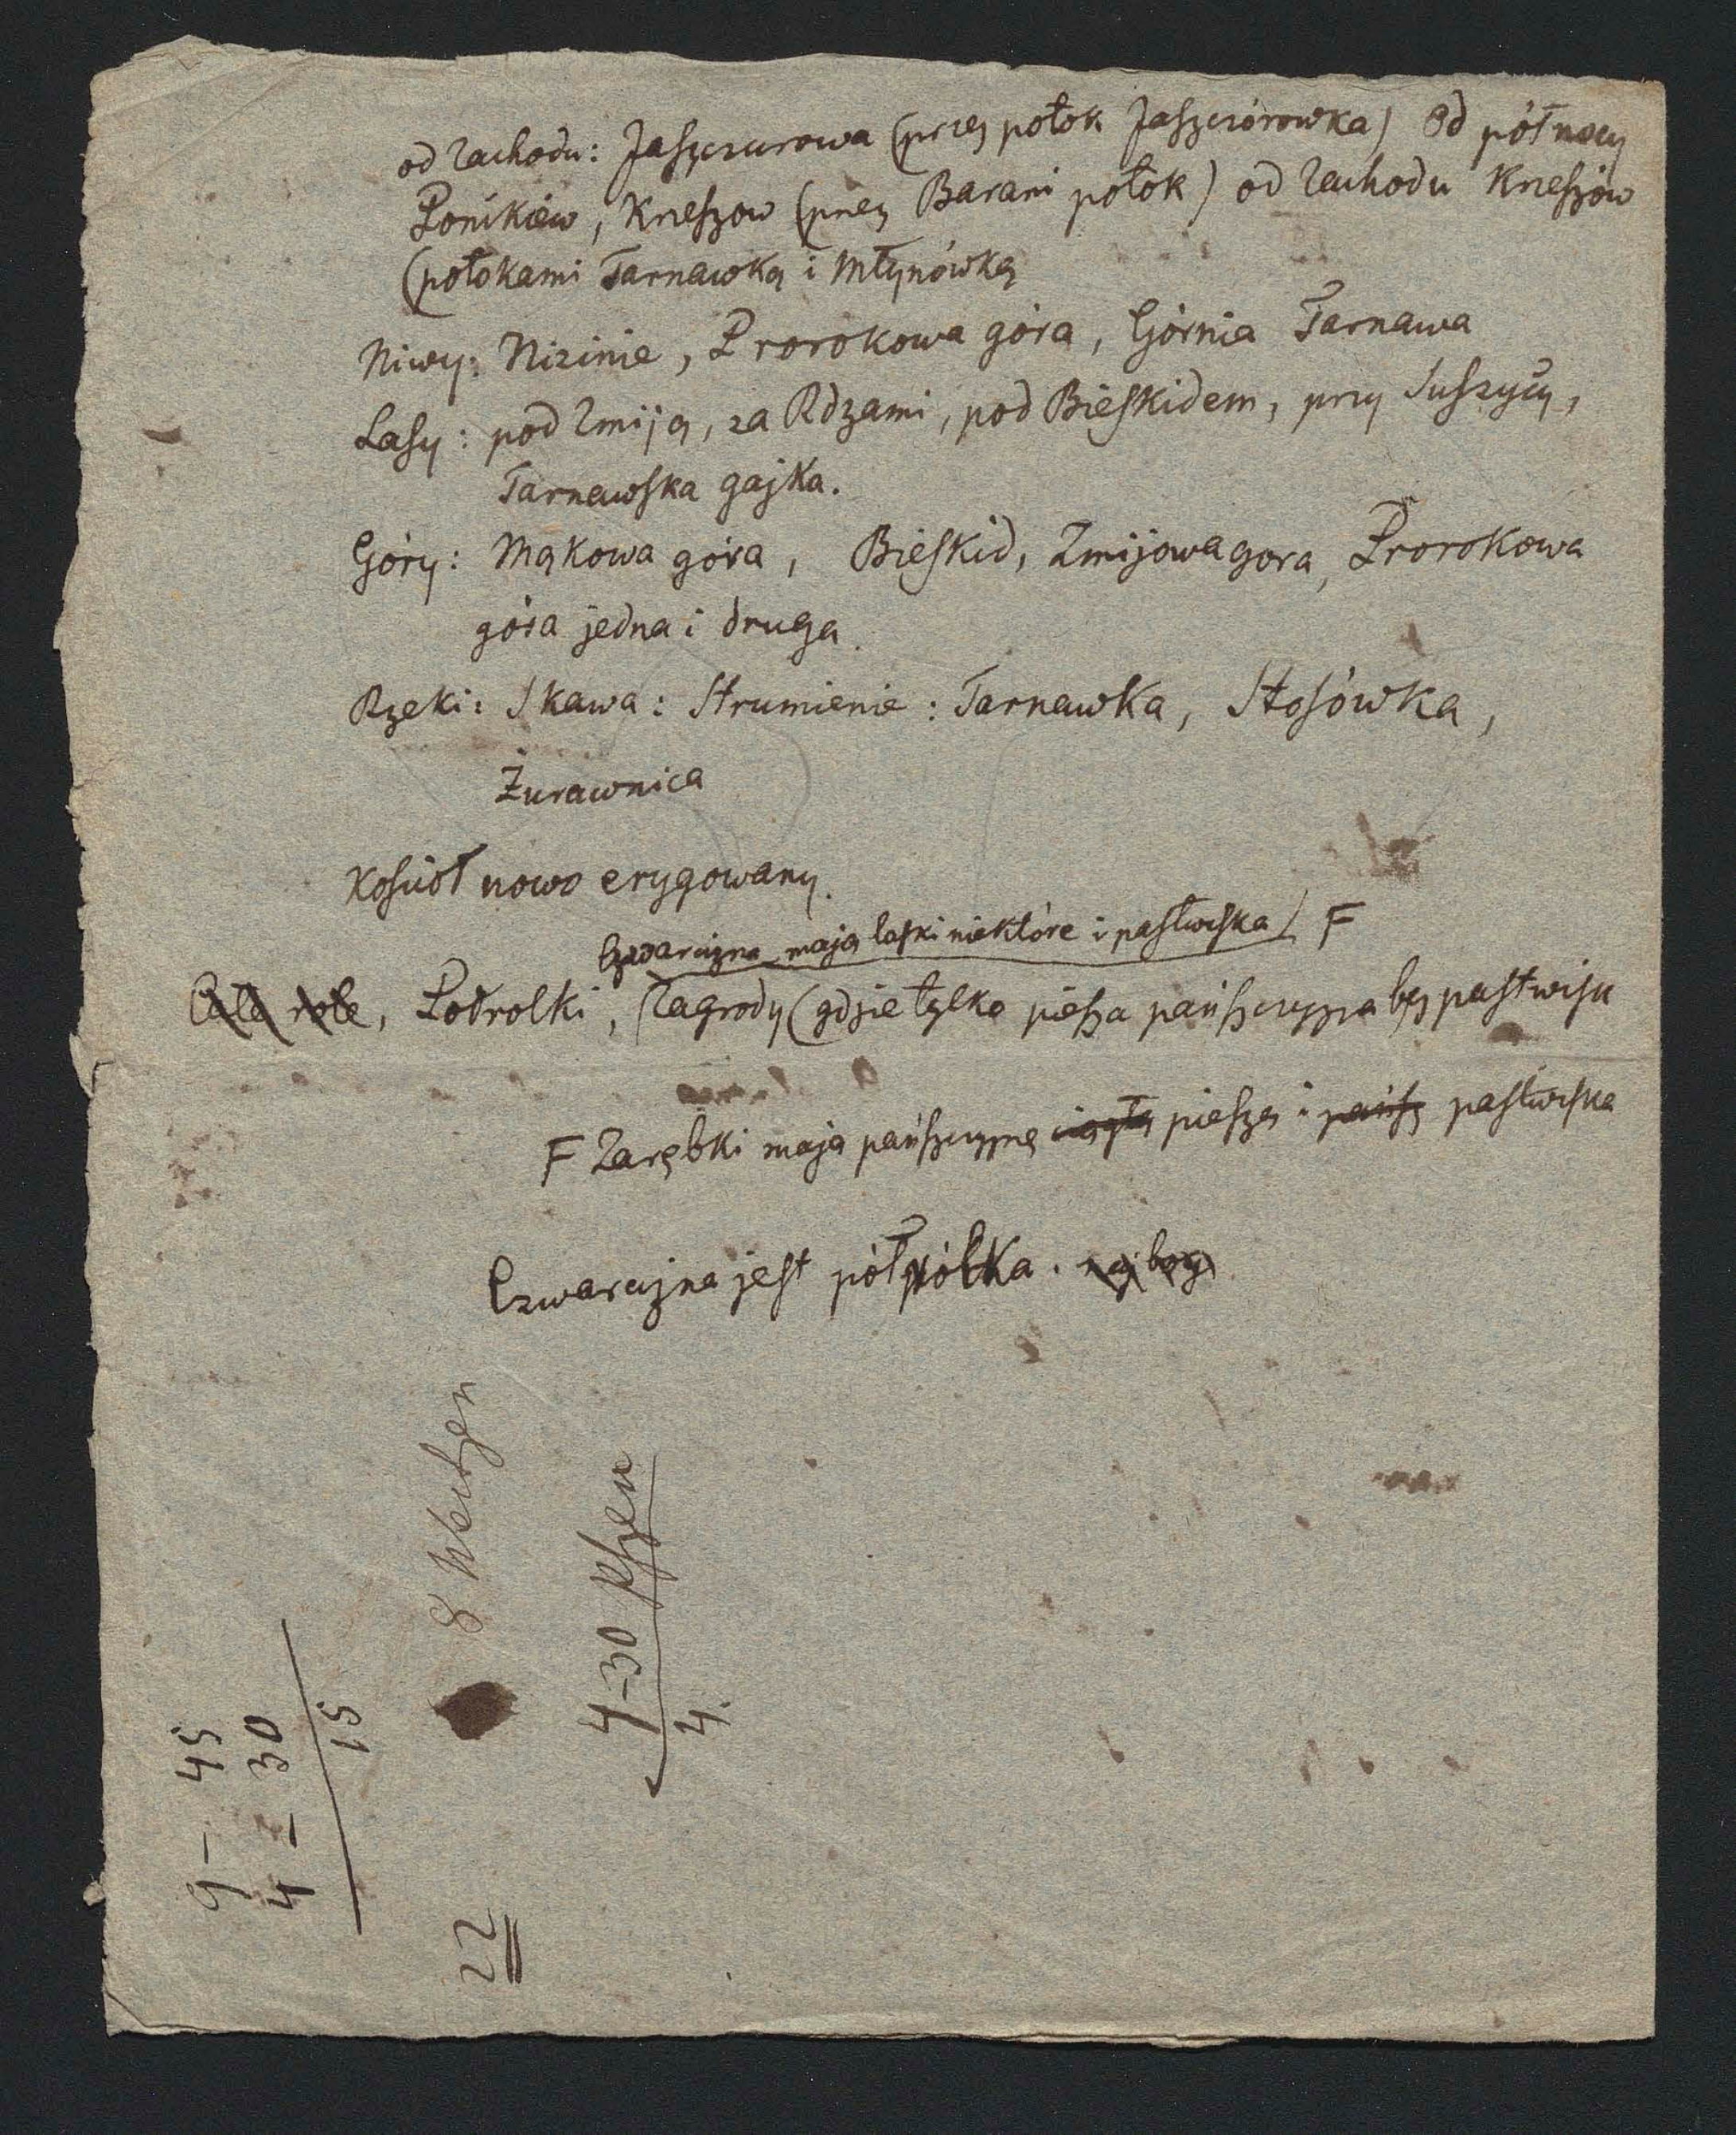 od Zachodu: Jaszczurowa (przez potok Jaszczórowka) Od północy
Ponikiew, Krzeszow (przez Barani potok) od Zachodu Krzeszów
(potokami Tarnawką i Młynówką
Niwy: Nizinie, Prorokowa góra, Górnia Tarnawa
Lasy: pod Zmiją, za Rdzami, pod Bieskidem, przy Suszycy,
Tarnawska gajka.
Góry: Mąkowa góra, Bieskid, Zmijowa gora, Prorokowa
góra jedna i druga.
Rzeki: Skawa: Strumienie: Tarnawka, Stosówka,
Żurawnica
Kościoł nowo erygowany.
Czwarcizna mają łaski niektóre i pastwiska / F
Całe role, Podrolki, Zagrody (gdzie tylko piesza pańszczyzna bez pastwisk
F Zarębki mają pańszczyznę ciągłą pieszą i pańsz pastwiska
Czwarcizna jest półrólka.
9 - 45
4 - 30
15
8
22
4-30
4.